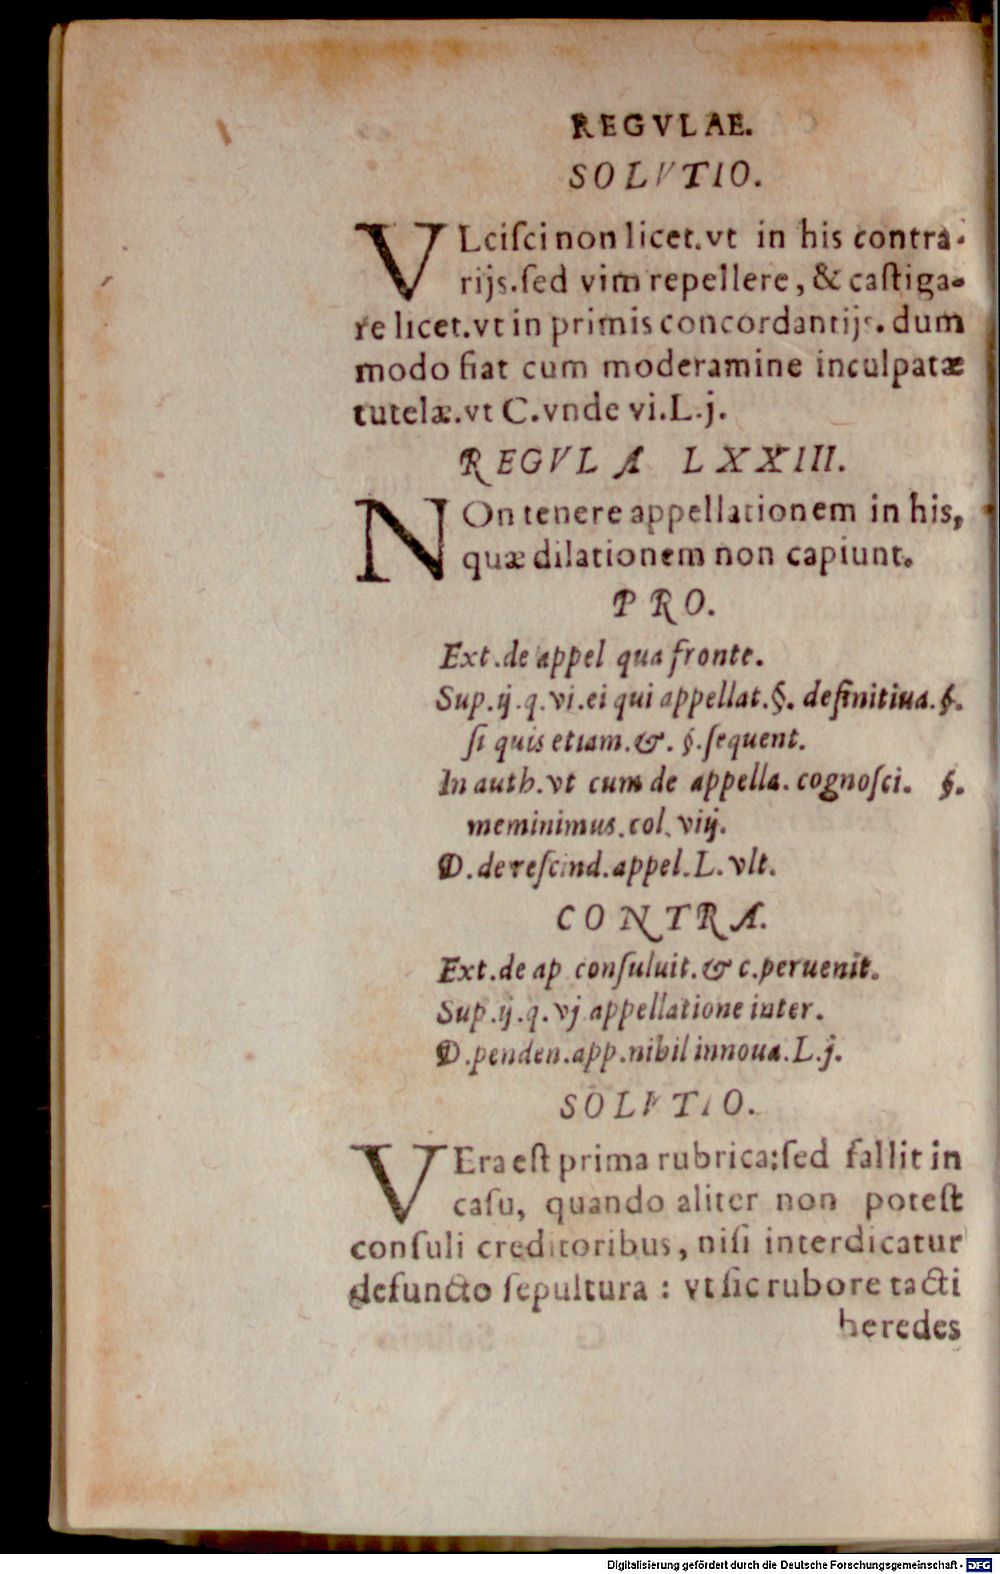 REGVLAE.
SOLVTIO.
VLciſci non licet.vt in his contra-
rijs.ſed vim repellere, & caſtiga-
re licet.vt in primis concordantijs. dum
modo fiat cum moderamine inculpatæ
tutelæ.vt C.vnde vi.L.j.
REGVLA LXXIII.
NOn tenere appellationem in his,
quæ dilationem non capiunt.
PRO.
Ext.de appel qua fronte.
Sup.ij.q.vi.ei qui appellat.§. definitiua.§.
ſi quis etiam.&. §.ſequent.
In auth.vt cum de appella. cognoſci. §.
meminimus.col.viij.
D.de reſcind.appel.L.vlt.
CONTRA.
Ext.de ap conſuluit.& c.peruenit.
Sup.ij.q.vj appellatione inter.
D.penden.app.nihil innoua.L.j.
SOLVTIO.
VEra eſt prima rubrica:ſed fallit in
caſu, quando aliter non poteſt
conſuli creditoribus, niſi interdicatur
defuncto ſepultura : vt ſic rubore tacti
heredes
Digitalisierung gefördert durch die Deutsche Forschungsgemeinschaft - DFG